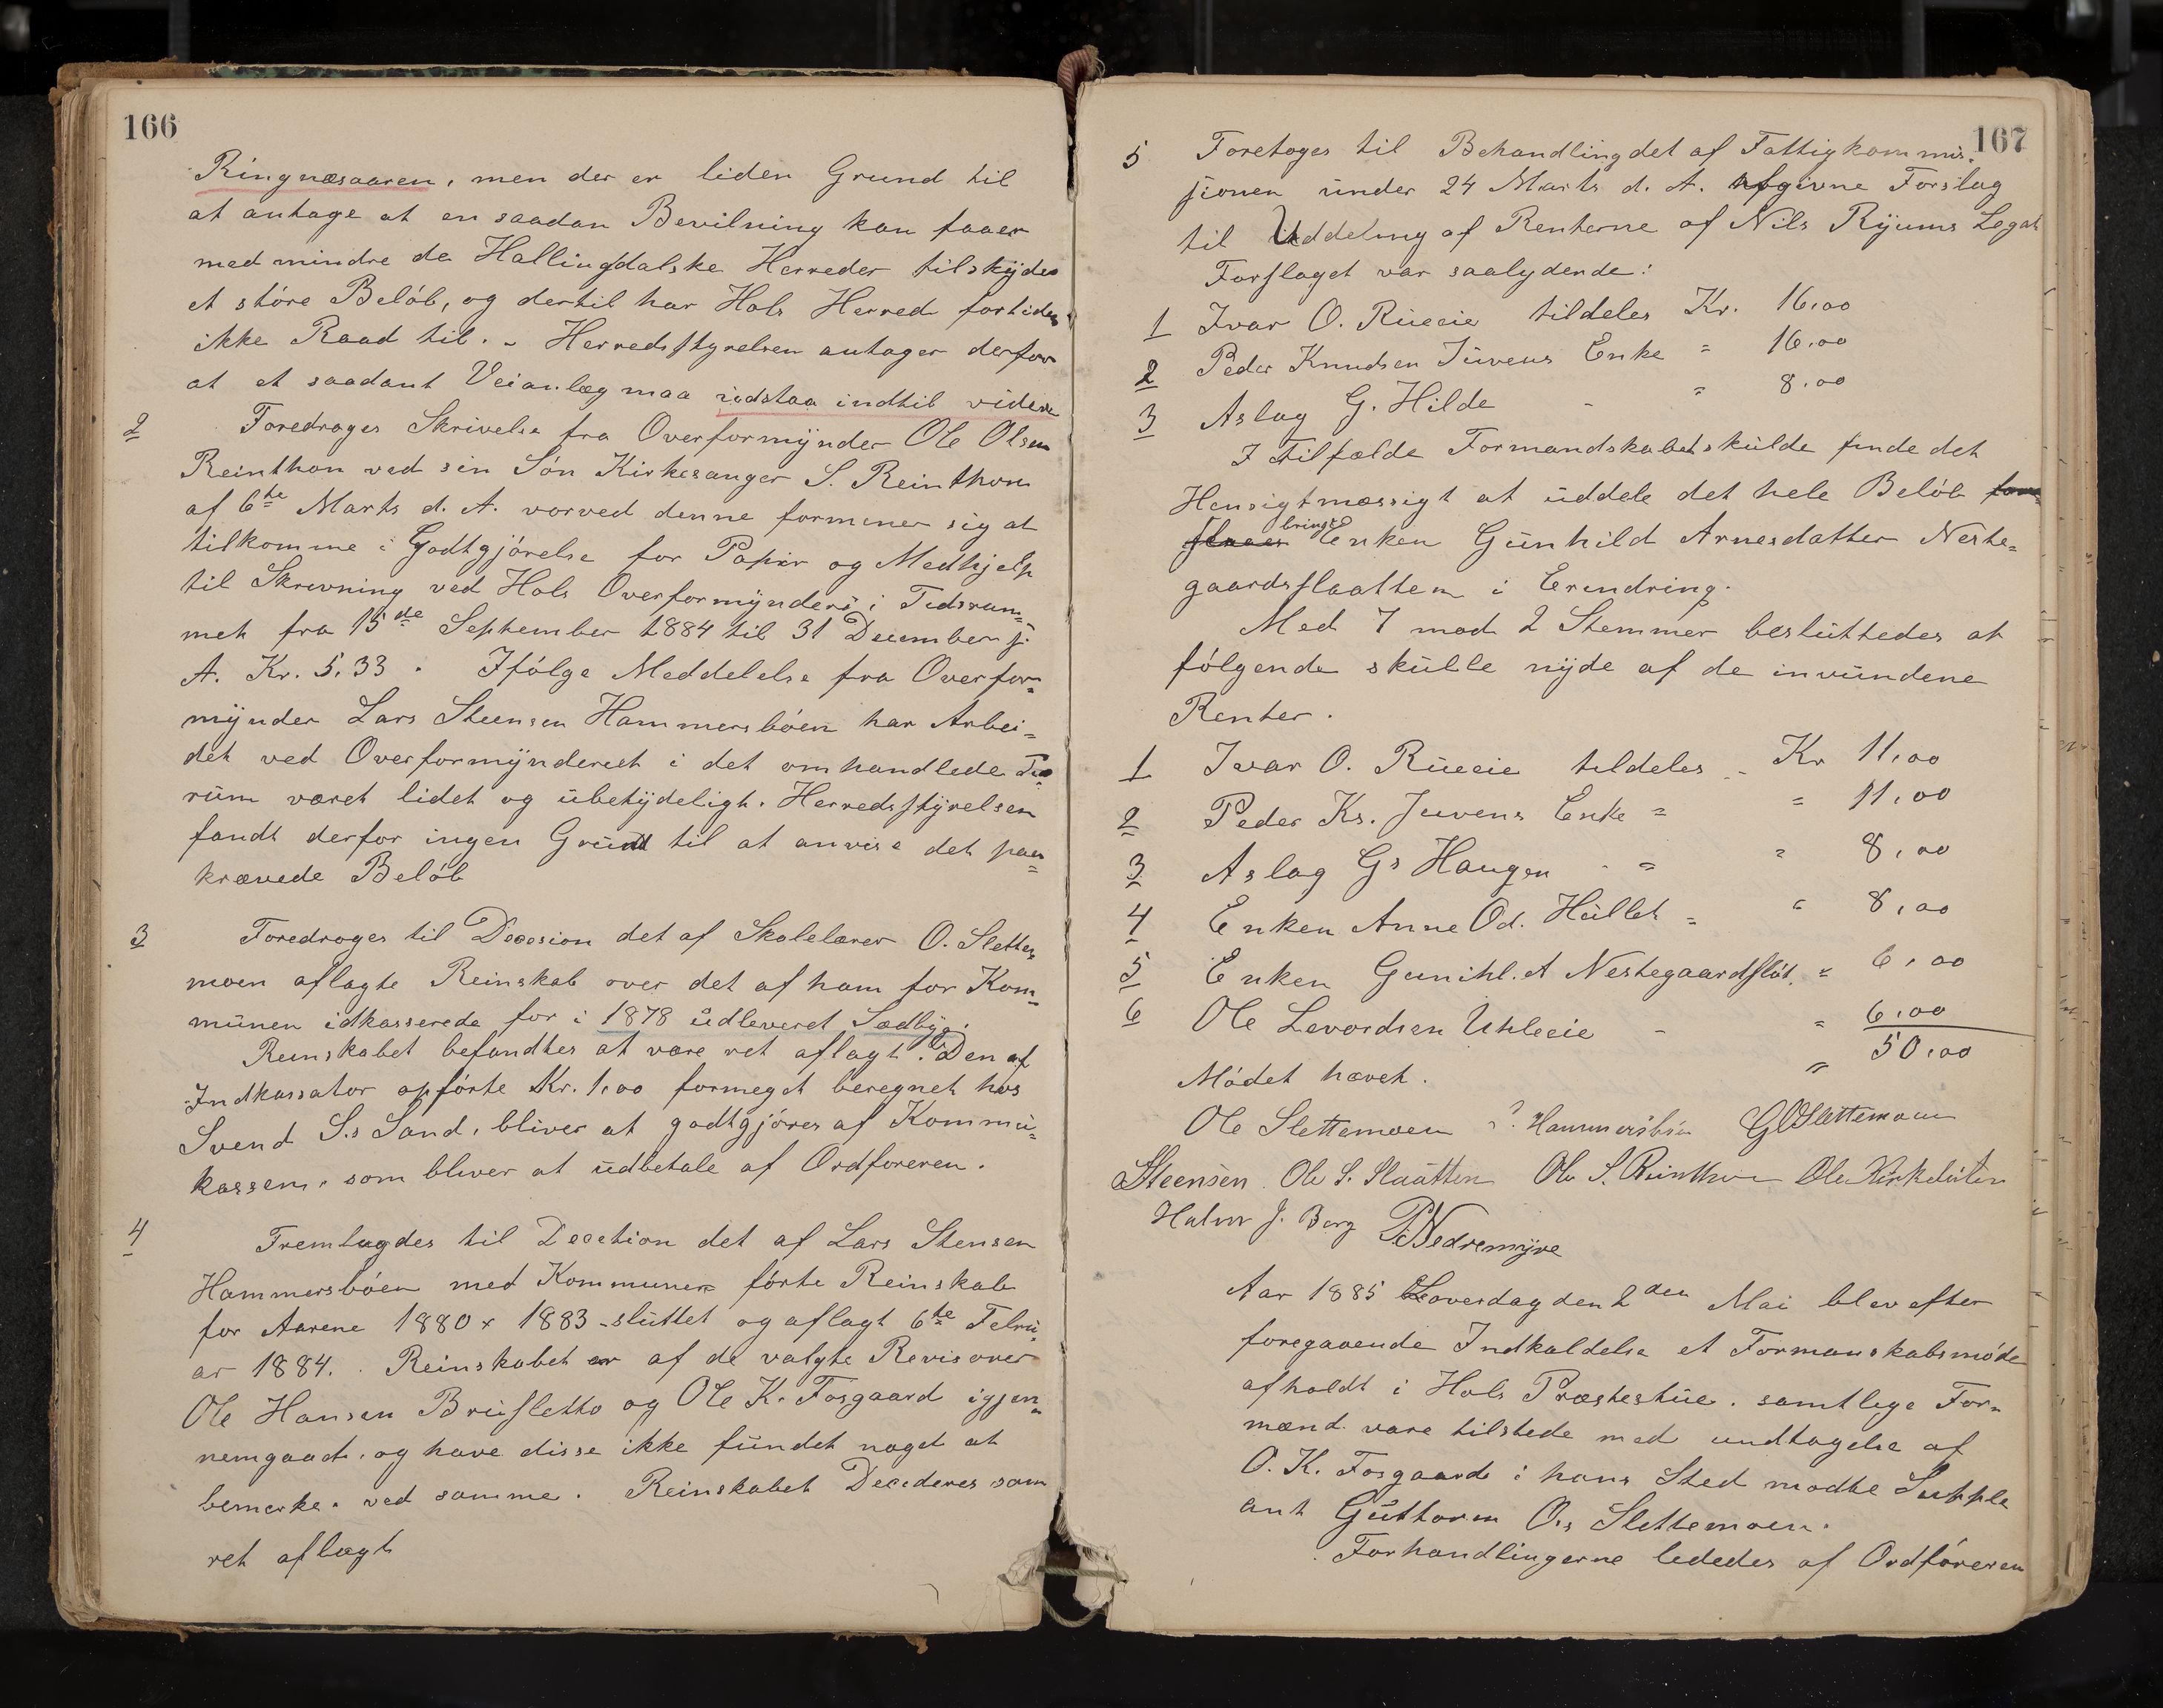 166
Ringnæsaaren, men der er liden Grund til
at antage at en saadan Bevilning kan faaes
med mindre de Hallingdalske Herreder tilskyder
et större Belöb, og dertil har Hols Herred fortiden
ikke Raad til. - Herredsstyrelsen antager derfor
at et saadant Veianlæg maa udstaa indtil videre
2 Foredroges Skrivelse fra Overformynder Ole Olsen
Reinthon ved sin Sön Kirkesanger S. Reinthon
af 6te Marts d. A. vorved denne formener sig at
tilkomme i Godtgjörelse for Papir og Medhjelp
til Skrivning ved Hols Overformynderi i Tidsrum=
met fra 15de September 1884 til 31 December f.
A. Kr. 5,33. Ifölge Meddelelse fra Overfor=
mynder Lars Steensen Hammersböen har Arbei=
det ved Overformynderiet i det omhandlede Tids=
rum været lidet og ubetydeligt. Herredsstyrelsen
fandt derfor ingen Grund til at anvise det paa=
krævede Belöb
3 Foredroges til Decesion det af Skolelærer O. Slette=
moen aflagte Reinskab over det af ham for Kom=
munen idkasserede for i 1878 udleveret Sædbyg.
Reinskabet befandtes at være ret aflagt. Den af
Indkassator opförte Kr. 1,00 formeget beregnet hos
Svend S.s Sand, bliver at godtgjöres af Kommu=
kassen, som bliver at udbetale af Ordföreren.
4 Fremlagdes til Decetion det af Lars Stensen
Hammersböen med Kommunen förte Reinskab
for Aarene 1880 x 1883 - sluttet og aflagt 6te Febru=
ar 1884. Reinskabet er af de valgte Revisorer
Ole Hansen Brusletto og Ole K. Fosgaard igjen=
nemgaaet, og have disse ikke fundet noget at
bemerke ved samme. Reinskabet Decideres som
ret aflagt
167
5 Foretoges til Behandling det af Fattigkommis=
sionen under 24 Marts d. A. afgivne Forslag
til Uddeling af Renterne af Nils Ryums Legat
Forslaget var saalydende:
1 Ivar O. Rueeie tildeles Kr. 16,00
2 Peder Knudsen Juvens Enke " 16,00
3 Aslag G. Hilde - " 8,00
I Tilfælde Formandskabet skulde finde det
Hensigtmæssigt at uddele det hele Belöb fore
slaaes bringes Enken Gunhild Arnesdatter Neste=
gaardsslaatten i Erindring.
Med 7 mod 2 Stemmer besluttedes at
fölgende skulle nyde af de invundene
Renter.
1 Ivar O. Rueeie tildeles - Kr 11,00
2 Peder Ks. Juvens Enke " " 11,00
3 Aslag Gs Haugen - " " 8,00
4 Enken Anne Od. Hullet " " 8,00
5 Enken Gunihl. A Nestegaardslöt. " 6,00
6 Ole Levordsen Uhleeie - " 6,00
" 50,00
Mödet hævet.
Ole Slettemoen Hammersböen G O Slettemoen
Steensen Ole S. Slaatten Ole S. Reinthon Ole
Halvor J. Berg P Nedremyre
Aar 1885 Loverdag den 2den Mai blev efter
foregaaende Indkaldelse et Formanskabsmöde
afholdt i Hols Præstestue. samtlege For=
mænd vare tilstede med undtagelse af
O. K. Fosgaard i hans Sted mödte Supple
ant Guttorm O.s Slettemoen.
Forhandlingerne lededes af Ordföreren